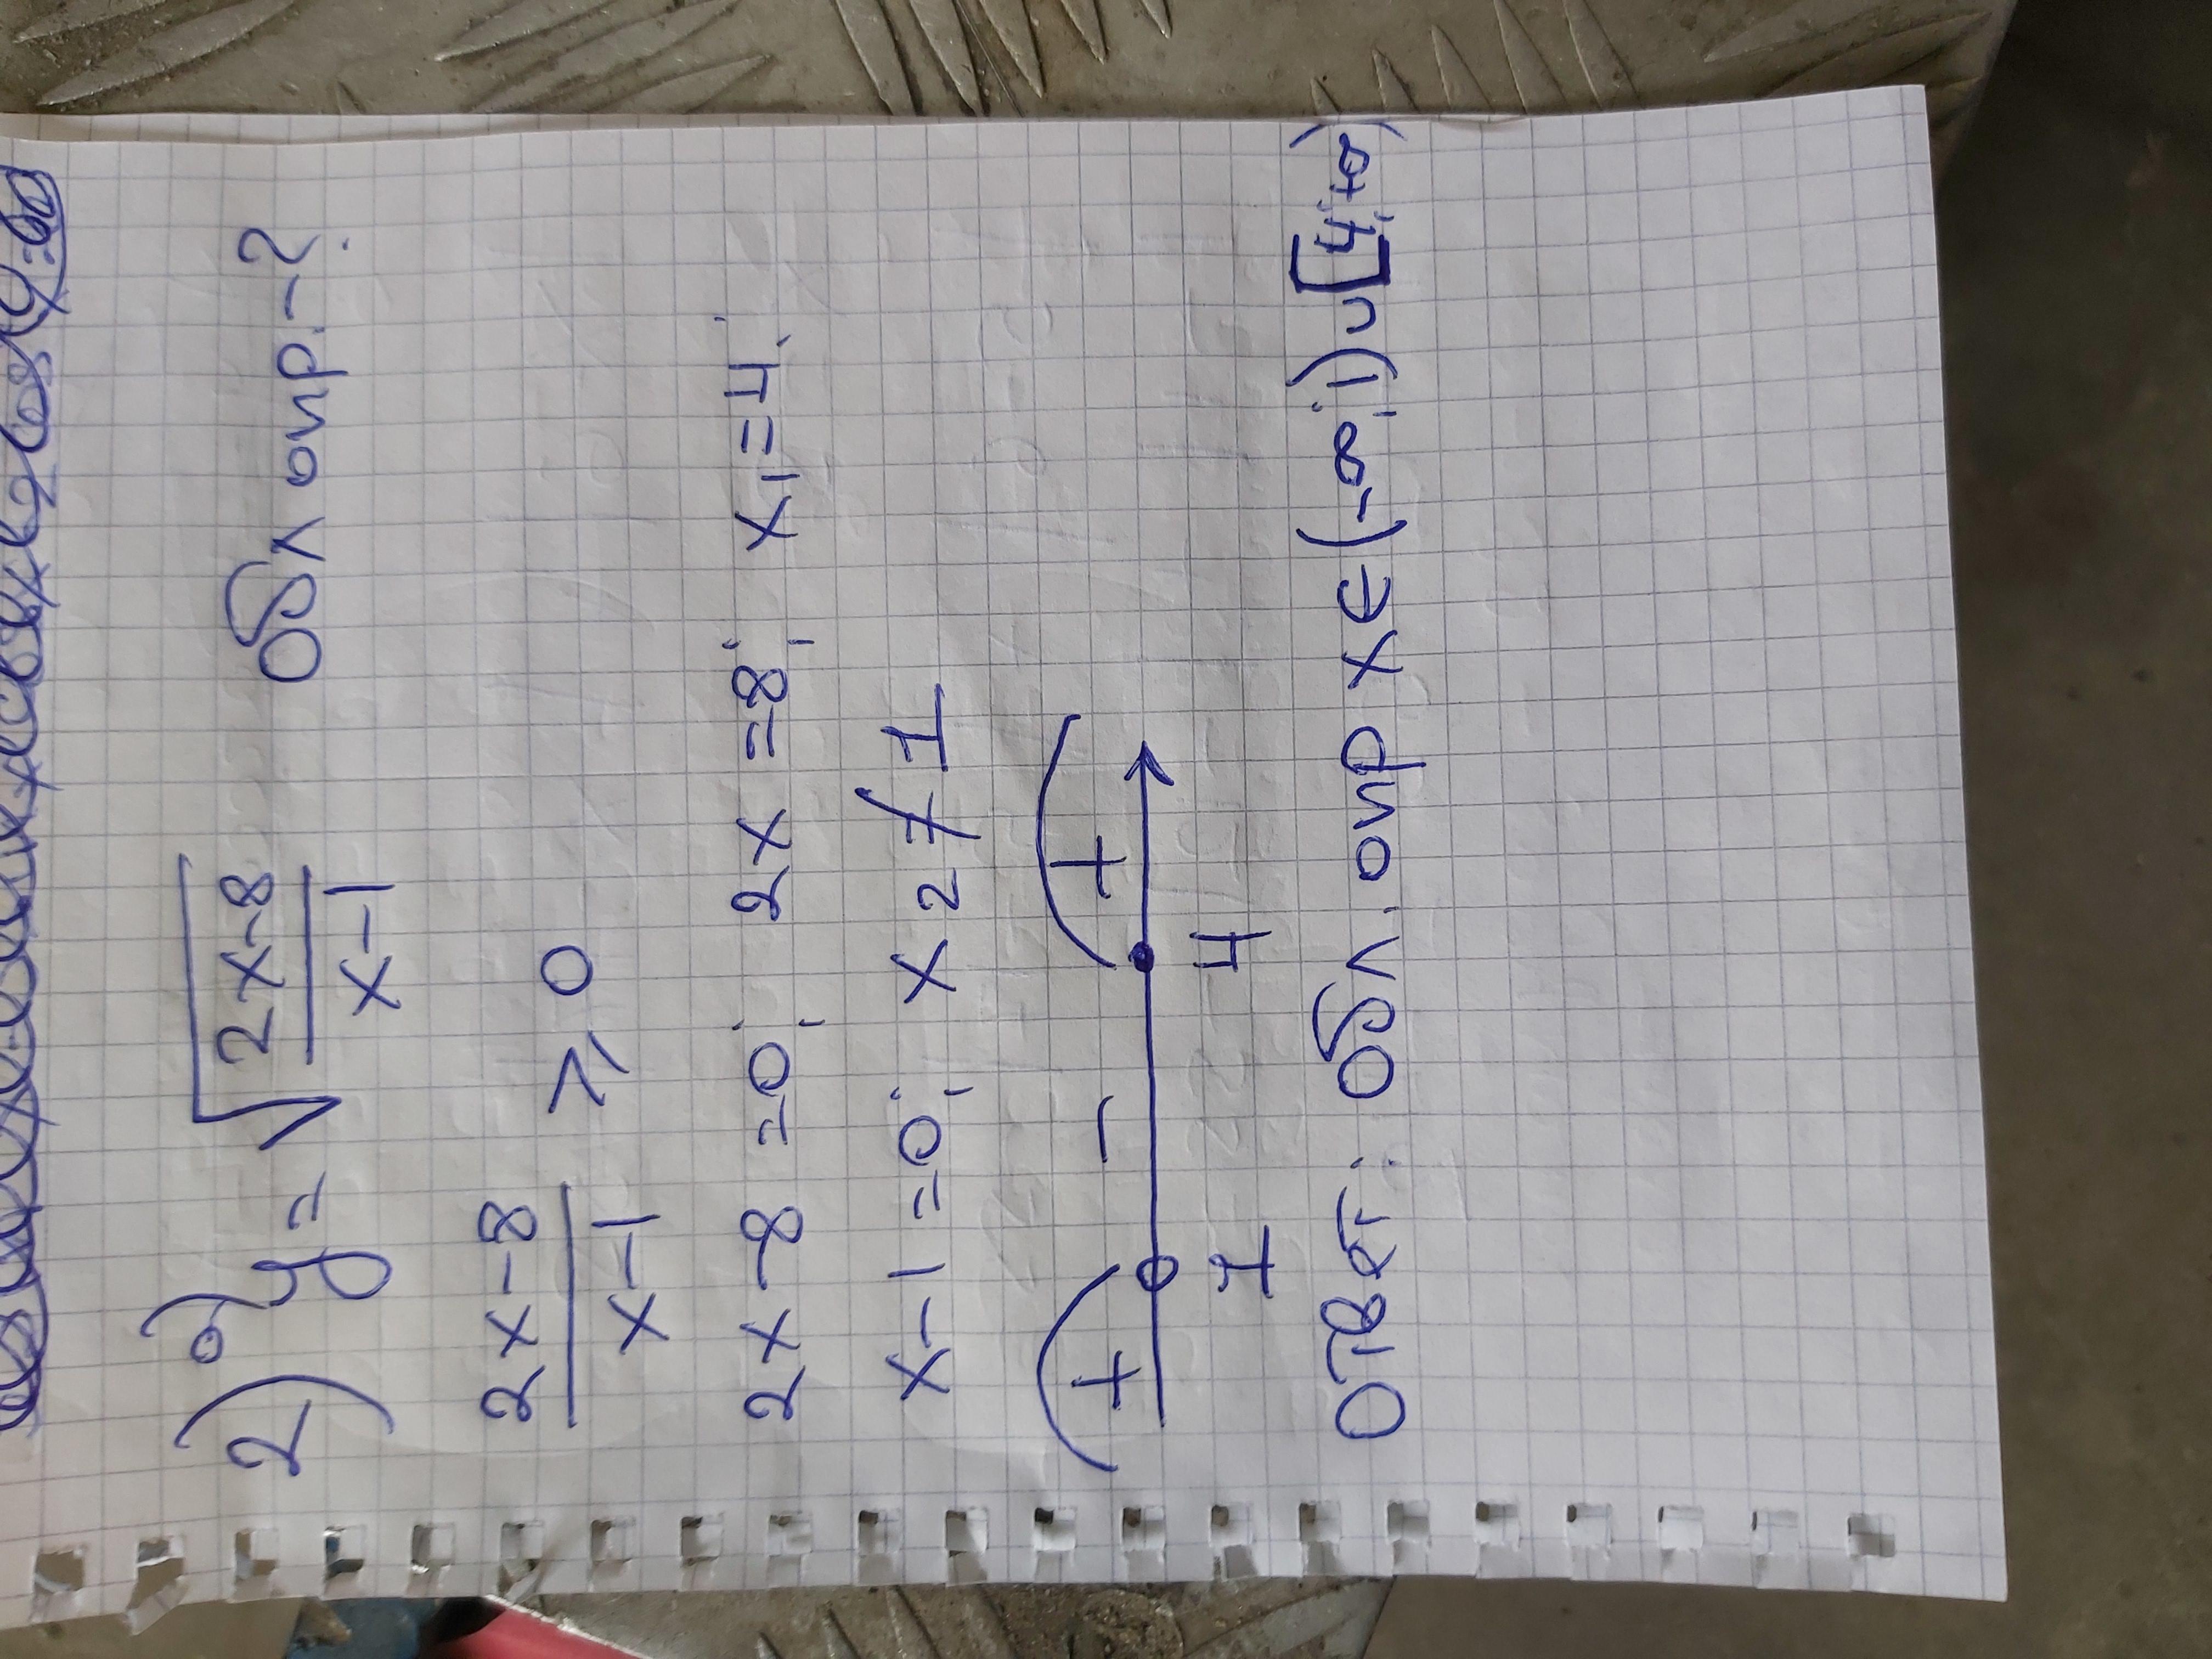 2) a) y = √((2x-8)/(x-1)) обл опр.-?
(2x-8)/(x-1) ⩾ 0
2x-8=0; 2x=8; x₁=4;
x-1=0; x₂≠1
+ - +
1 4
Ответ: обл. опр x∈(-∞;1)∪[4;+∞)